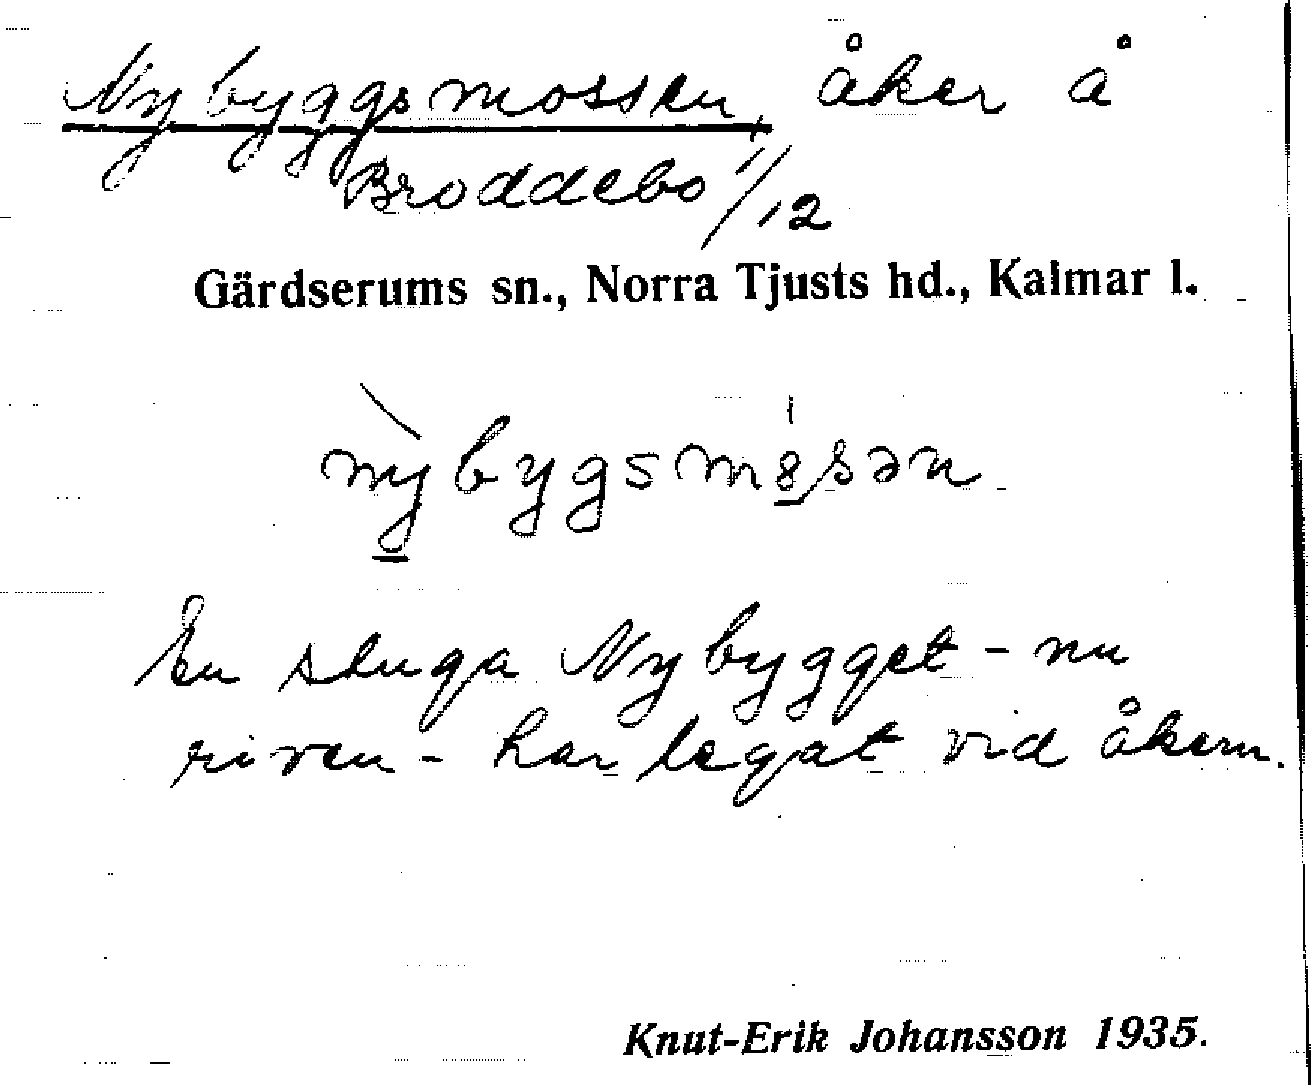 Nybyggsmossen, åker å
Broddebo 1/12
Gärdserums sn., Norra Tjusts hd., Kalmar l.
nỳbygsmȯsən
En stuga Nybygget - nu
riven - har legat vid åkern.
Knut-Erik Johansson 1935.